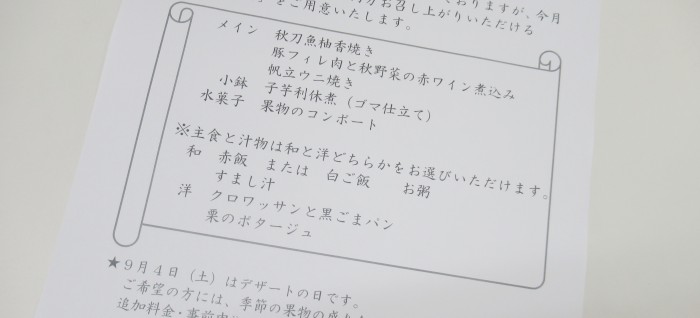 おりますが、今月
お召し上がりいただける
をご用意いたします。
メイン 秋刀魚柚香焼き
豚フィレ肉と秋野菜の赤ワイン煮込み
帆立ウニ焼き
小鉢 子芋利休煮（ゴマ仕立て）
水菓子 果物のコンポート
※主食と汁物は和と洋どちらかをお選びいただけます。
和 赤飯 または 白ご飯 お粥
すまし汁
洋 クロワッサンと黒ごまパン
栗のポタージュ
★9月4日（土）はデザートの日です。
ご希望の方には、季節の果物の盛り
追加料金・事前